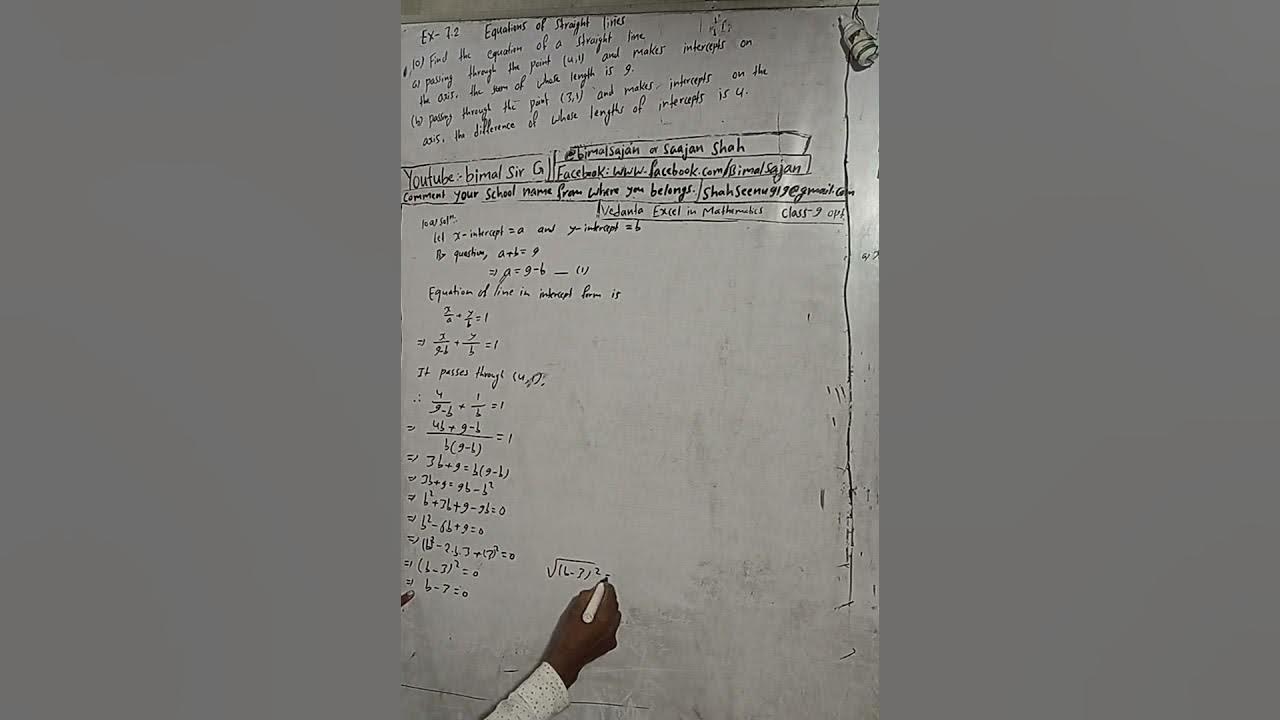 Ex- 7.2 Equations of straight lines
10) Find the equation of a straight line
a) passing through the point (4,1) and makes intercepts on
the axis, the sum of whose length is 9.
(b) passing through the point (3,1) and makes intercepts on the
axis, the difference of whose lengths of intercepts is 4.
@bimalsajan or saajan shah
Youtube:- bimal Sir G
Facebook: www.facebook.com/Bimalsajan
Comment your school name from where you belongs.
shahseenu919@gmail.com
Vedanta Excel in Mathematics Class-9 opt.
10 a) sol^n:
Let x-intercept = a and y-intercept = b
By question, a+b= 9
⇒ a = 9-b — (1)
Equation of line in intercept form is
x/a + y/b = 1
⇒ x/9-b + y/b = 1
It passes through (4,1).
∴ 4/9-b + 1/b = 1
⇒ 4b + 9-b / b(9-b) = 1
⇒ 3b+9 = b(9-b)
⇒ 3b+9 = 9b-b²
⇒ b²+3b+9-9b=0
⇒ b²-6b+9=0
⇒ (b)²-2.b.3+(3)²=0
⇒ (b-3)²=0
⇒ b-3=0
√(b-3)² =